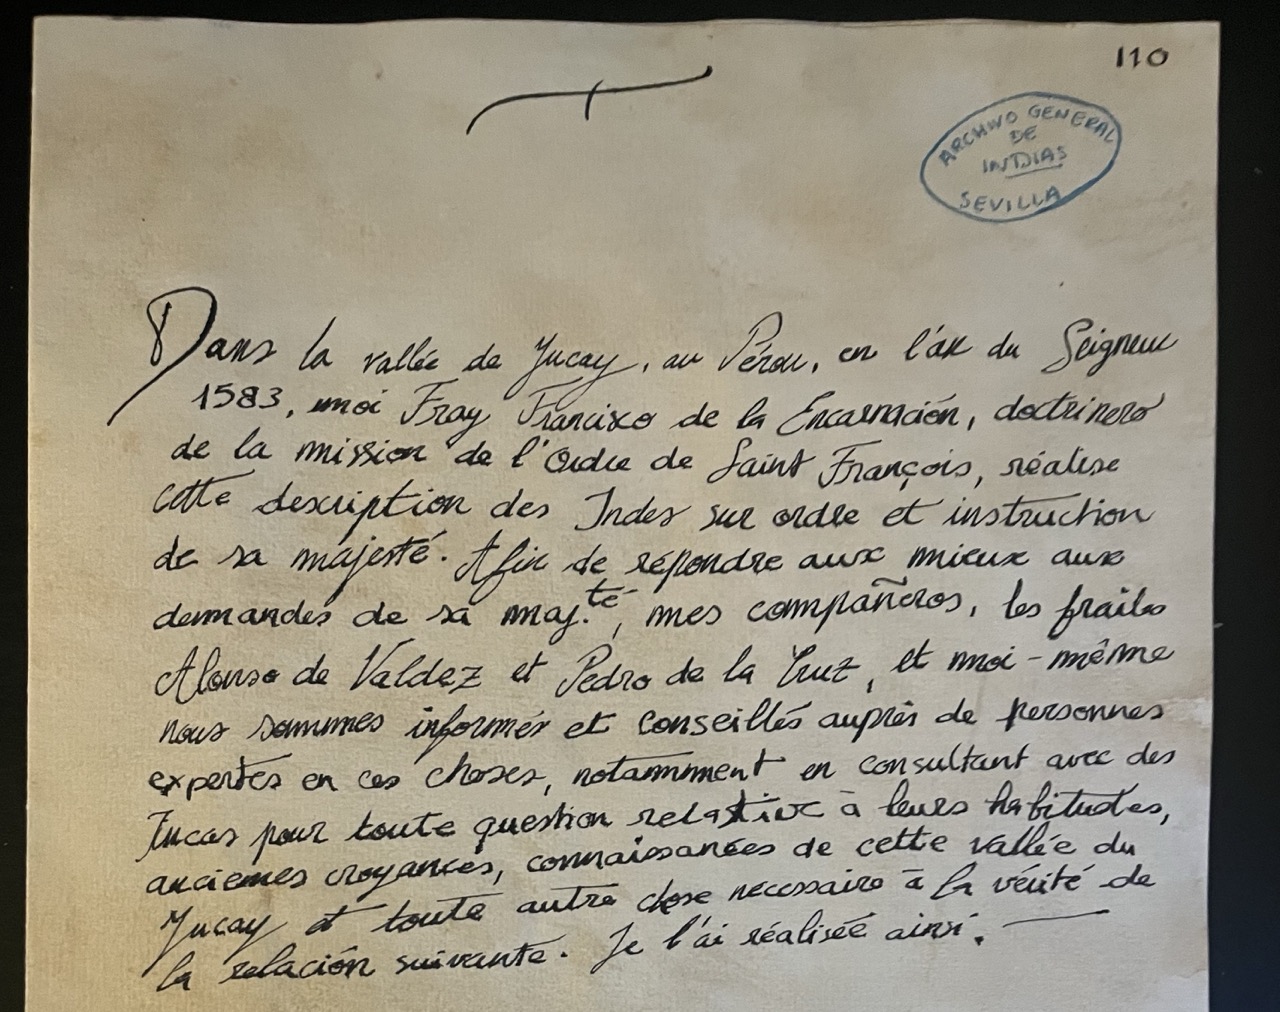 110
ARCHIVO GENERAL
DE
INDIAS
SEVILLA
Dans la vallée de Yucay, au Pérou, en l'an du Seigneur
1583, moi Fray Francisco de la Encarnación, doctrinero
de la mission de l'Ordre de Saint François, réalise
cette description des Indes sur ordre et instruction
de sa majesté. Afin de répondre aux mieux aux
demandes de sa maj.té, mes compañeros, les frailes
Alonso de Valdez et Pedro de la Cruz, et moi-même
nous sommes informés et conseillés auprès de personnes
expertes en ces choses, notamment en consultant avec des
Incas pour toute question relative à leurs habitudes,
anciennes croyances, connaissances de cette vallée du
Yucay et toute autre chose necessaire à la vérité de
la relación suivante. Je l'ai réalisée ainsi.